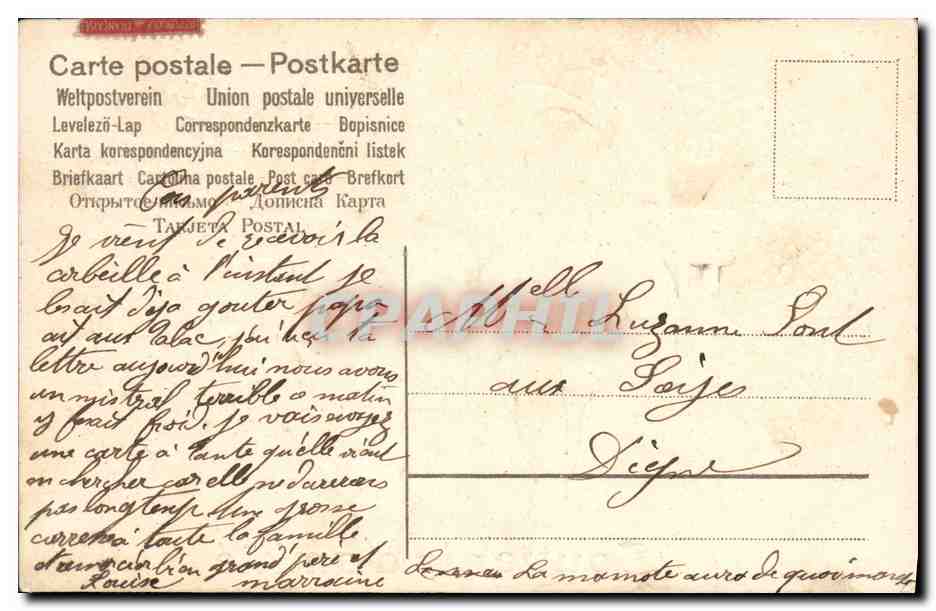 Carte postale — Postkarte
Weltpostverein Union postale universelle
Levelező-Lap Correspondenzkarte Dopisnice
Karta korespondencyjna Korespondenčni listek
Briefkaart Cartolina postale Post card Brefkort
Открытое письмо Дописна Карта
Tarjeta Postal
parents
Je vient de recevoir la
corbeille à l'instant je
gouter papa
lettre aujourd'hui nous avons
un mistral terrible ce matin
y fesait froid. je vais envoyer
une carte à tante qu'elle vient
m chercher car elle ne
pas longtemp une grosse
caresse à toute la famille
grand père et
Louise marraine
Mell Suzanne Pont
aux Sièjes
Digne
La mamote aura de quoi
CPAPHIL